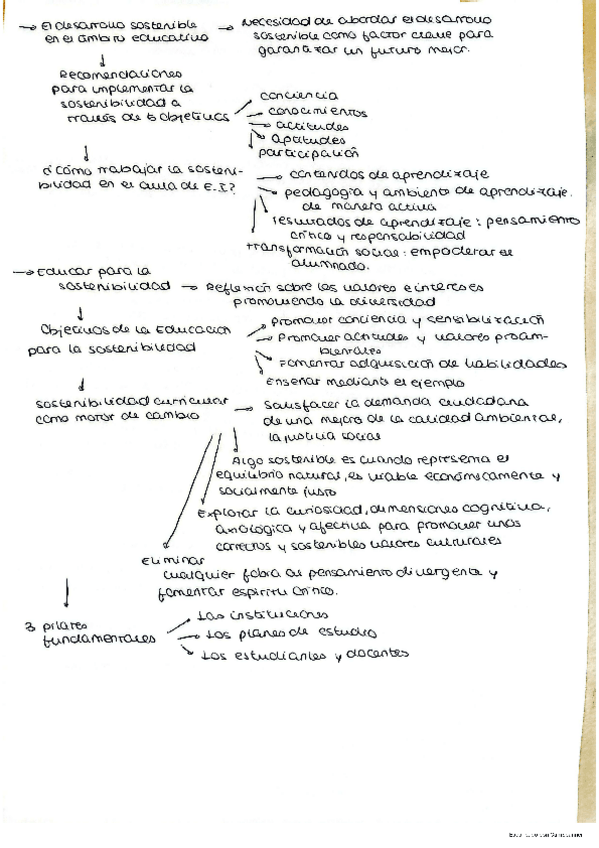 → El desarrollo sostenible → Necesidad de abordar el desarrollo
en el ámbito educativo sostenible como factor clave para
garantizar un futuro mejor.
Recomendaciones
para implementar la
sostenibilidad a
través de 5 objetivos
conciencia
conocimientos
actitudes
aptitudes
participación
¿Cómo trabajar la sosteni-
bilidad en el aula de E.I?
contenidos de aprendizaje
pedagogía y ambiente de aprendizaje.
de manera activa
resultados de aprendizaje: pensamiento
crítico y responsabilidad
transformación social: empoderar
alumnado.
→ Educar para la
sostenibilidad → Reflexión sobre los valores e intereses
promoviendo la diversidad
Objetivos de la Educación
para la sostenibilidad
promover conciencia y sensibilización
promover actitudes y valores proam-
bientales
Fomentar adquisición de habilidades
Enseñar mediante el ejemplo
sostenibilidad curricular
como motor de cambio
→ Satisfacer la demanda ciudadana
de una mejora de la calidad ambiental,
la justicia social
Algo sostenible es cuando representa el
equilibrio natural, es viable económicamente y
socialmente justo
Explorar la curiosidad, dimensiones cognitiva,
axiológica y afectiva para promover unos
correctos y sostenibles valores culturales
Eliminar
cualquier de pensamiento divergente y
fomentar espíritu crítico.
3 pilares
fundamentales
Las instituciones
Los planes de estudio
Los estudiantes y docentes